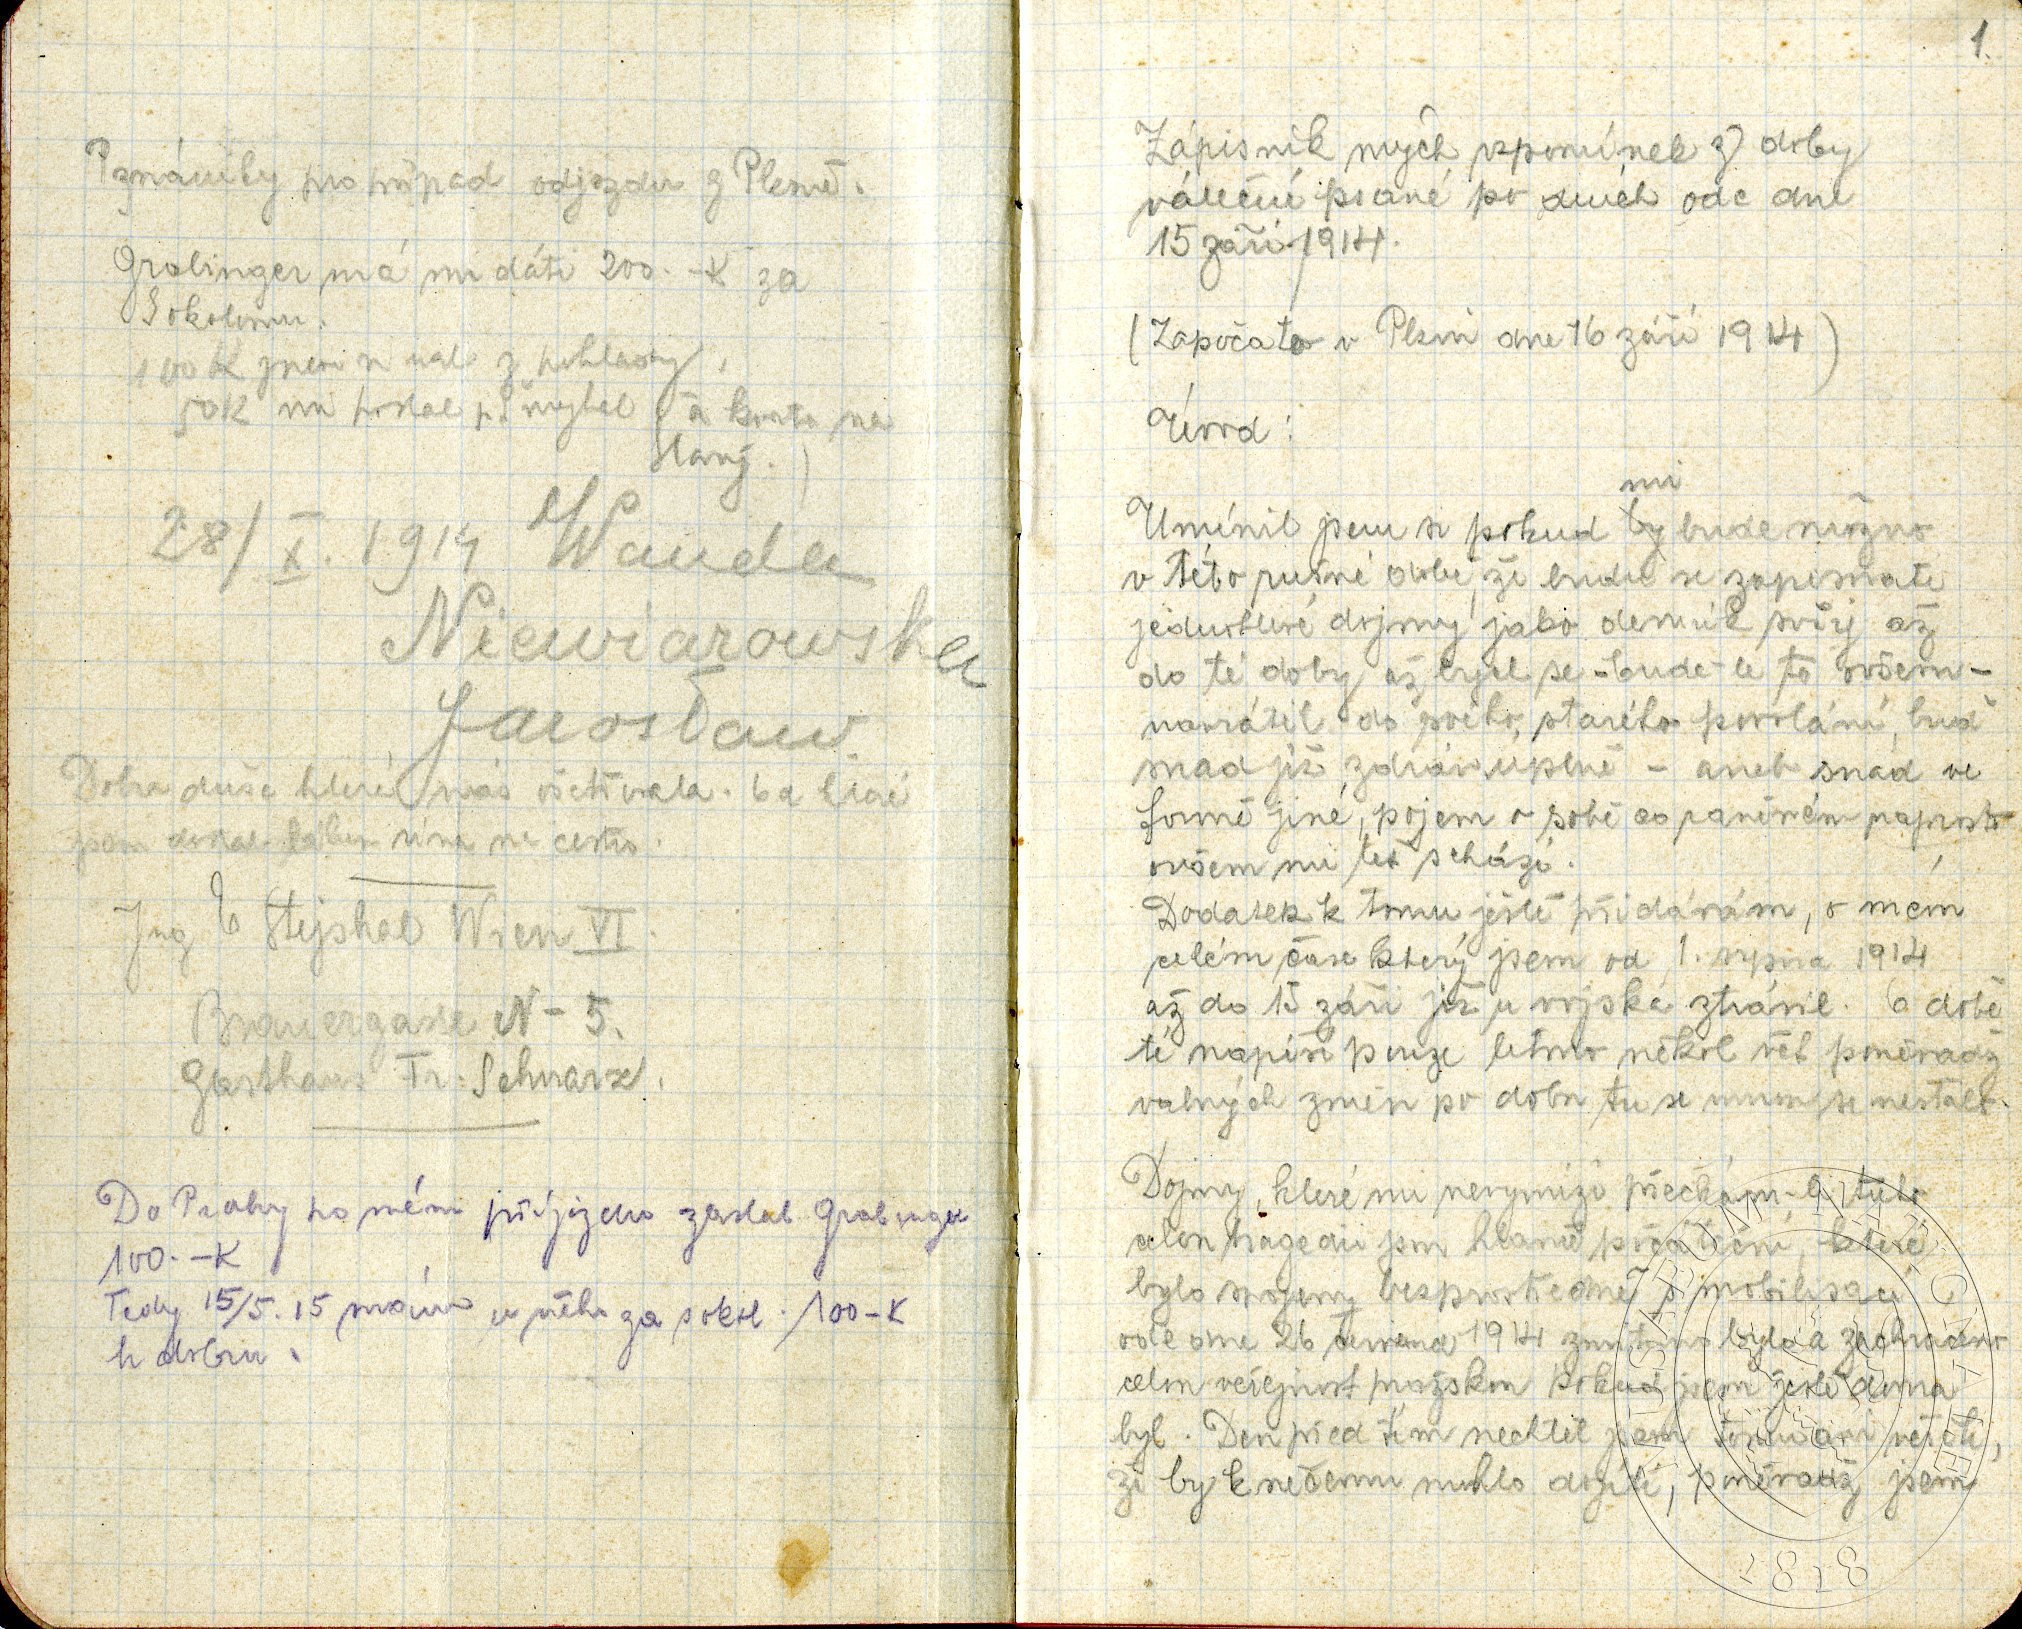 Poznámky pro případ odjezdu z Plzně.
Grolinger má mi dáti 200.-K za
Sokolovnu.
100 K jsem z
50K mi poslal
28/X. 1914 Wanda
Niewiarowska
Jarosław
Dobra duše která nás ošetřovala.
jsem dostal na cestu.
Ing Stejskal Wien VI.
Brauergasse N-5.
Gasthaus Fr. Schwarz.
Do Prahy po mém příjezdu zaslal Grolinger
100.-K
Tedy 15/5. 15 mám u něho za sokol. 100-K
k dobru.
1.
Zápisník mých vzpomínek z doby
válečné psané po dnech ode dne
15 září 1914.
(Započato v Plzni dne 16 září 1914)
Úvod:
mi
Umínil jsem si pokud by bude možno
v této rušné době, že budu si zapisovati
jednotlivé dojmy jako deník svůj až
do té doby až bych se - bude-li to ovšem -
navrátil do svého, starého povolání, buď
snad již zdráv úplně - aneb snad ve
formě jiné, pojem o sobě co raněném naprosto
ovšem mi teď schází.
Dodatek k tomu ještě přidávám, o mém
celém čase který jsem od 1. srpna 1914
až do 15 září již u vojska ztrávil. O době
té napíši pouze letmo několik vět poněvadž
valných změn po dobu tu se mnou se nestalo.
Dojmy, které mi nevymizí přečkám-li tuto
celou tragedii jsou hlavně počáteční, které
bylo spojeny bezprostředně s mobilisací
ode dne 26 července 1914 zmítáno bylo a zachváceno
celou veřejnost pražskou pokud jsem ještě doma
byl. Den před tím nechtěl jsem tomu ani věřiti,
že by k něčemu mohlo dojíti, poněvadž jsem
MUSAEUM NATIONALE
1818